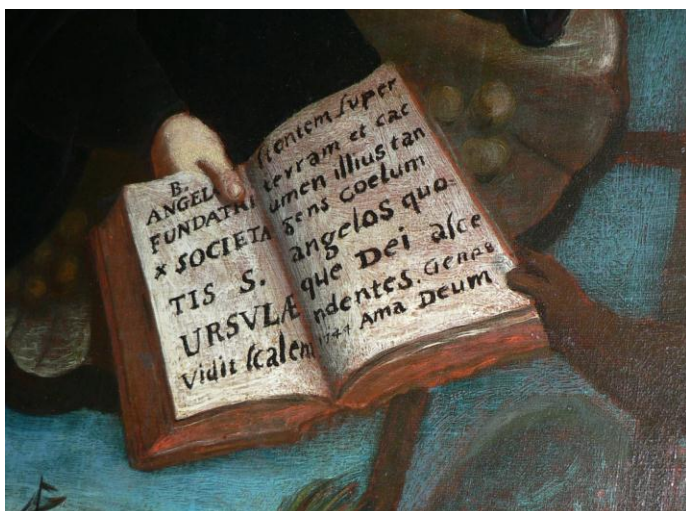 B.
ANGEL
FUNDATRI
x SOCIETA
TIS S.
URSVLÆ
Vidit ſcalem
ſtantem ſuper
terram et cac
umen illius tan
gens Coelum
angelos quo
que Dei aſce
ndentes. Gen 28
1744 Ama Deum